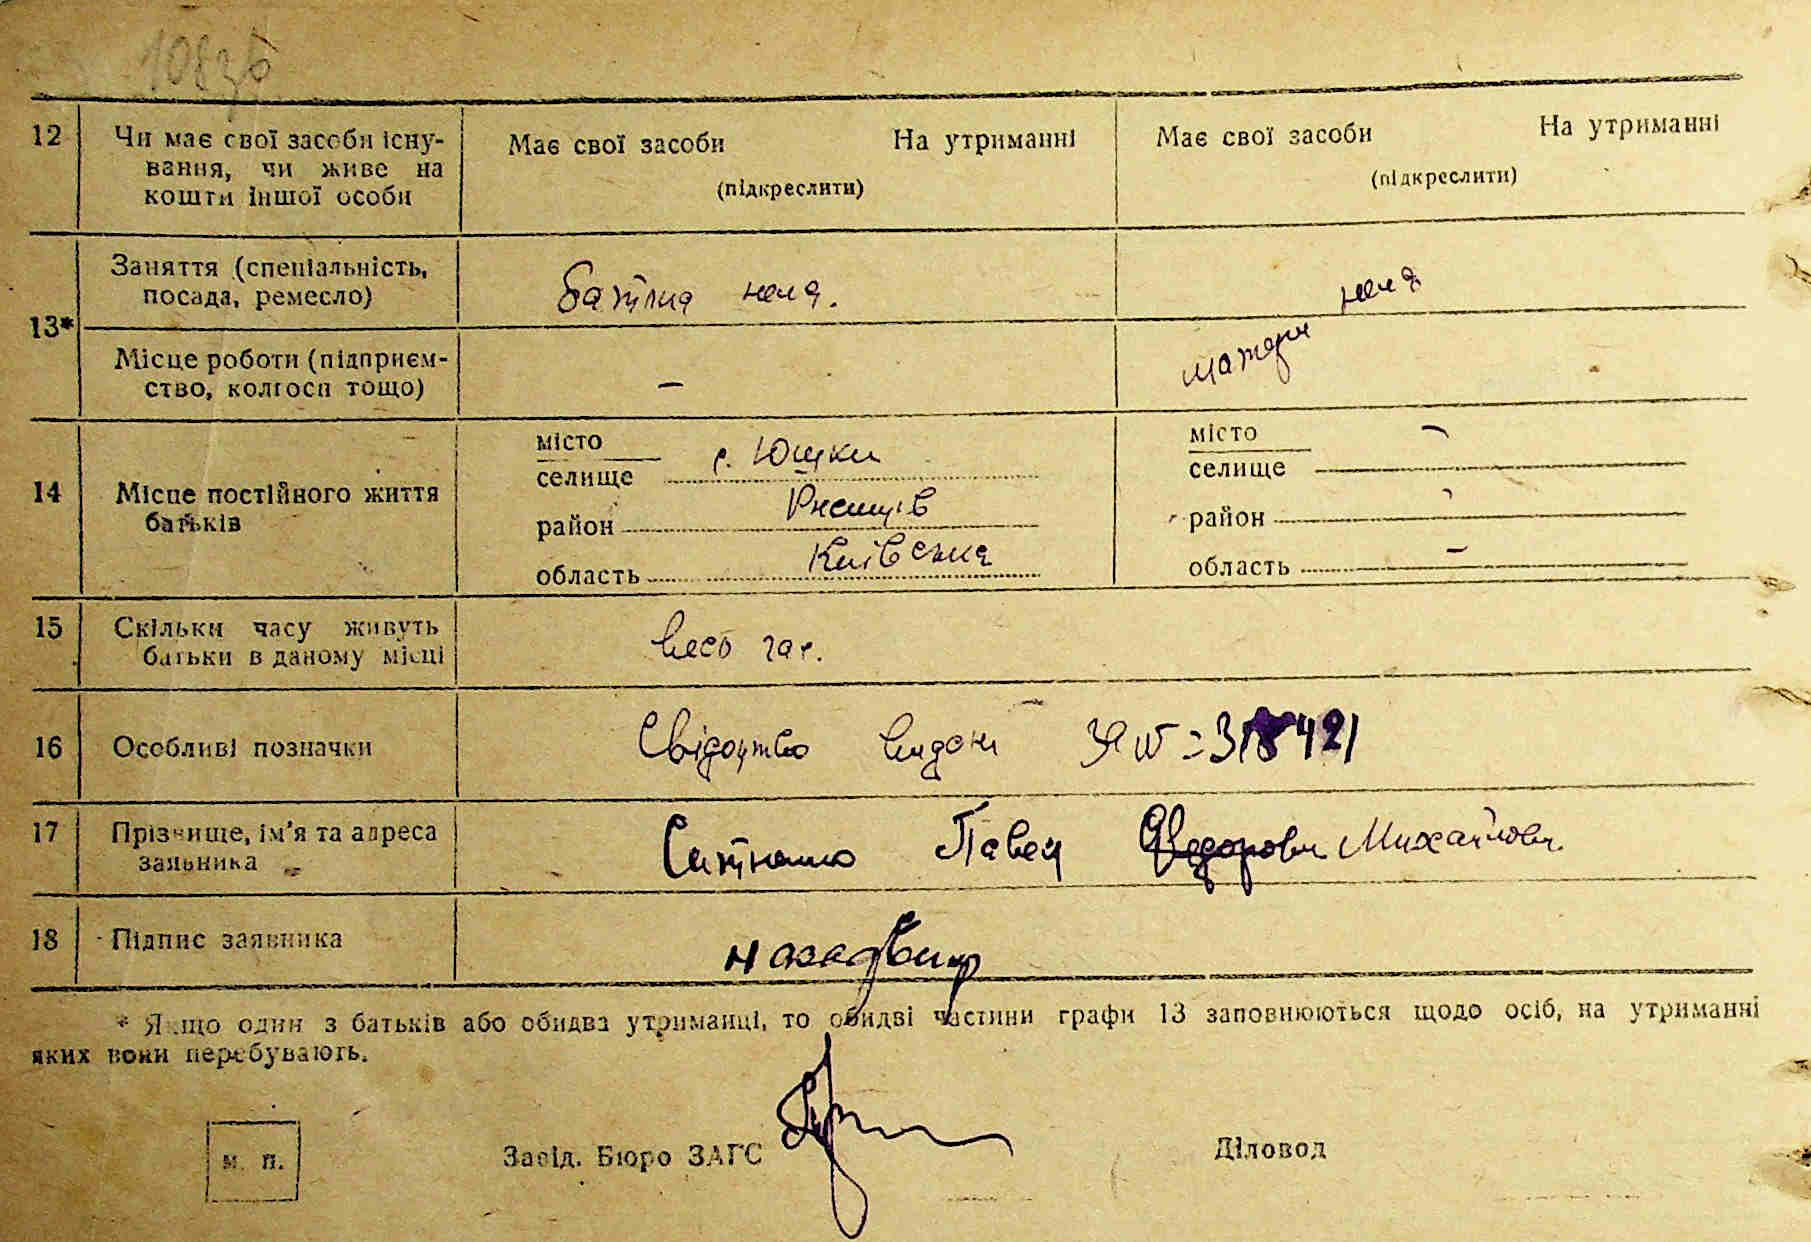 12 Чи має свої засоби існу- Має свої засоби На утриманні Має свої засоби На утриманні
вання, чи живе на (підкреслити) (підкреслити)
кошти іншої особи
Заняття (спеціальність, батька нема. нема
посада, ремесло)
13*
Місце роботи (підприєм- — матери
ство, колгосп тощо)
14 Місце постійного життя
батьків
місто
селище с. Ющки
район Ржищів
область Київська
місто –
селище
район
область –
15 Скільки часу живуть весь час.
батьки в даному місці
16 Особливі позначки Свідоцтво видані
17 Прізвище, ім’я та адреса Павел Михайлович.
заявника
18 Підпис заявника
* Якщо один з батьків або обидва утриманці, то обидві частини графи 13 заповнюються щодо осіб, на утриманні
яких вони перебувають.
м. п. Завід. Бюро ЗАГС Діловод